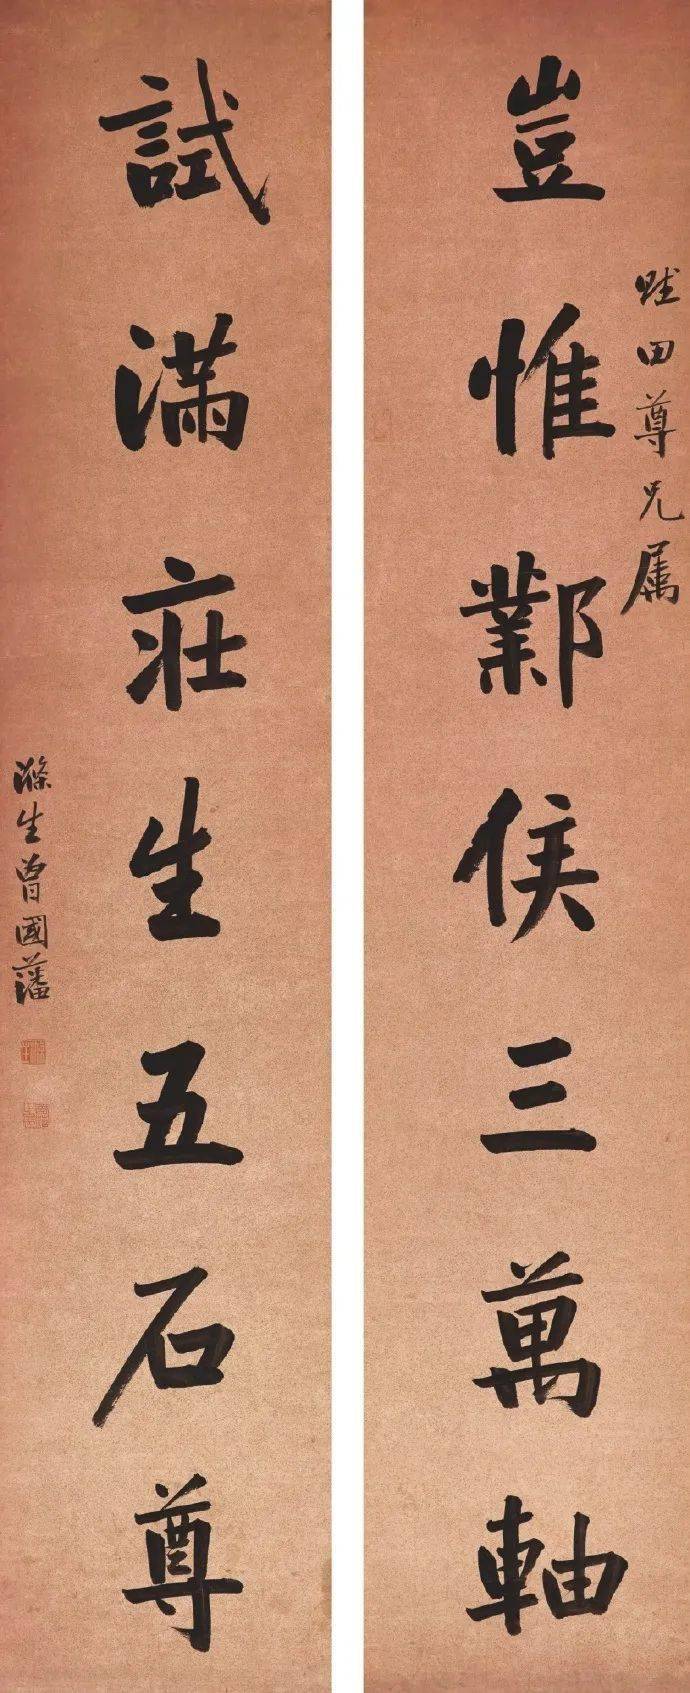 豈惟鄴侯三萬軸
田尊兄属
試滿莊生五石尊
滌生曾國藩